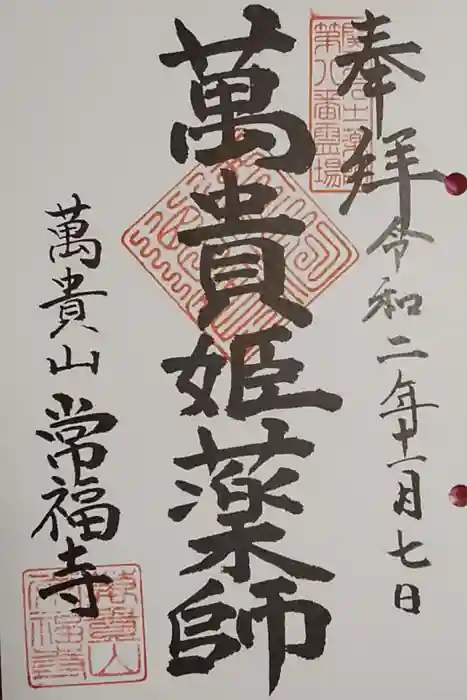 奉拝
令和二年十一月七日
第八番霊場
萬貴姫薬師
萬貴山
常福寺
萬貴山
常福寺